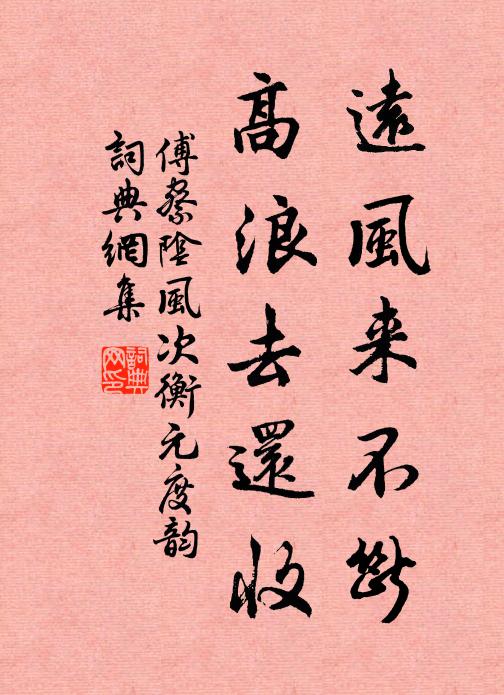 遠風来不斷
高浪去還收
傅察陰風次衡元度韵
詞典網集
詞典网印